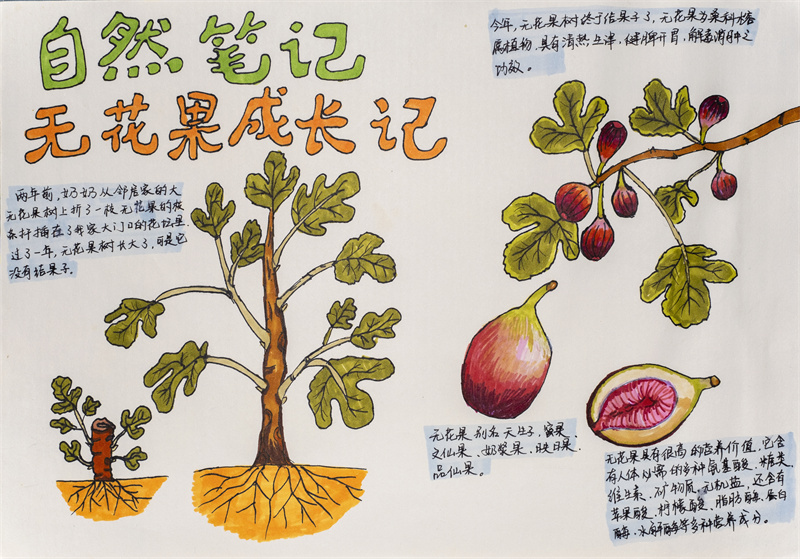 自然笔记
无花果成长记
两年前，奶奶从邻居家的大
无花果树上折了一枝无花果的枝
条扦插在了我家大门口的花坛里。
过了一年，无花果树长大了，可是它
没有结果子。
今年，无花果树终于结果子了，无花果为桑科榕
属植物，具有清热生津，健脾开胃，解毒消肿之
功效。
无花果别名天生子，蜜果、
文仙果、奶浆果、映日果、
品仙果。
无花果具有很高的营养价值，它含
有人体必需的多种氨基酸、糖类、
维生素、矿物质、无机盐，还含有
苹果酸、柠檬酸、脂肪酶、蛋白
酶、水解酶等多种营养成分。